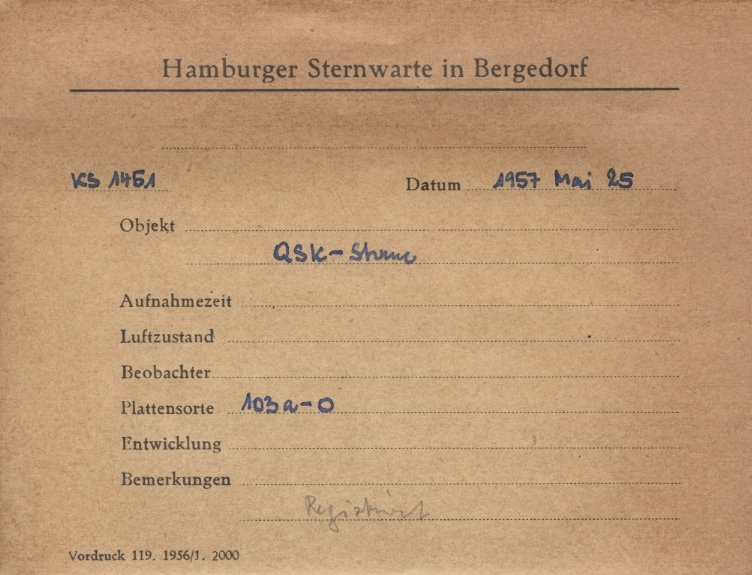 Hamburger Sternwarte in Bergedorf
KS 1451 Datum 1957 Mai 25
Objekt
QSK-Sterne
Aufnahmezeit
Luftzustand
Beobachter
Plattensorte 103a-O
Entwicklung
Bemerkungen
Registriert
Vordruck 119. 1956/1. 2000